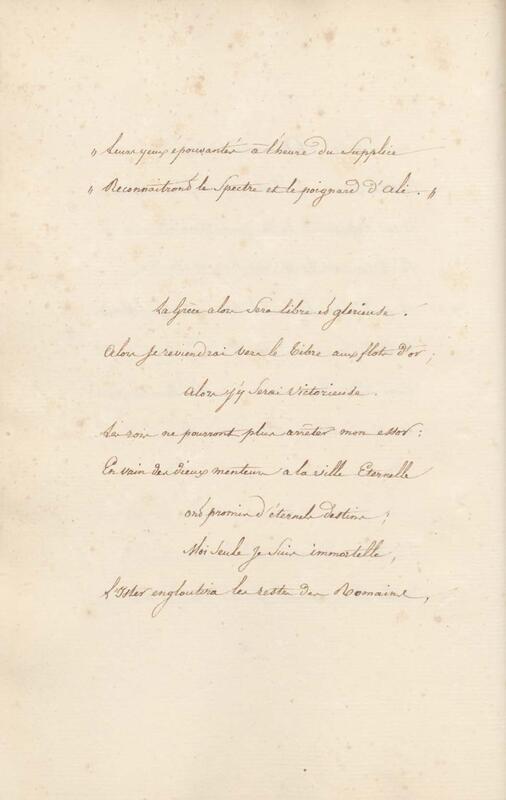 " Leurs yeux épouvantés à l'heure du Supplice
" Reconnaîtront le Spectre et le poignard d'Ali. "
La Grèce alors Sera libre et glorieuse.
Alors je reviendrai vers le Tibre aux flots d'or;
Alors j'y Serai Victorieuse.
Les rois ne pourront plus arrêter mon essor:
En vain des dieux menteurs a la ville Eternelle
ont promis d'éternels destins;
Moi Seule je Suis immortelle,
L'Ister engloutira les restes des Romains,